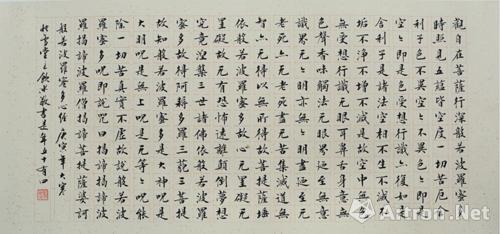 觀自在菩薩行深般若波羅蜜多
時照見五蘊皆空度一切苦厄舍
利子色不異空々不異色々即是
空々即是色受想行識亦復如是
舍利子是諸法空相不生不滅不
垢不淨不增不減是故空中無色
無受想行識无眼耳鼻舌身意無
色聲香味觸法无眼界迺至無意
識界无無明亦無无明盡迺至无
老死亦無老死盡无苦集滅道無
智亦无得以無所得故菩提薩埵
依般若波羅蜜多故心无罣礙無
罣礙故无有恐怖遠離顛倒夢想
究竟涅槃三世諸佛依般若波羅
蜜多故得阿耨多羅三藐三菩提
故知般若波羅蜜多是大神呪是
大明呪是無上呪是无等々呪能
除一切苦真實不虛故說般若波
羅蜜多呪即說呪曰揭諦揭諦波
羅揭諦波羅僧揭諦菩提薩婆訶
般若波羅蜜多心經 庚寅年大寒
於雪堂之 敬書是年五十有四
Artron.Net